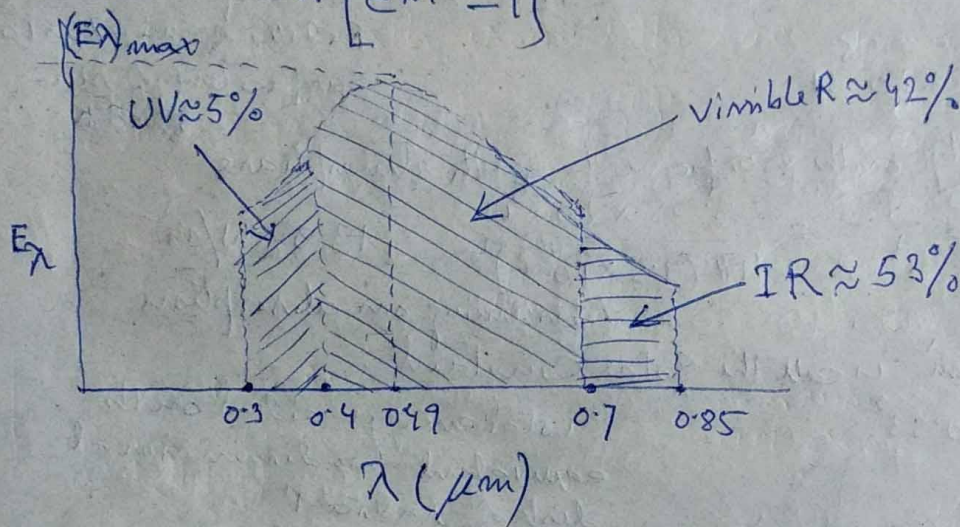 [(e^ -1]
(Eλ)max
UV≈5%
VissibleR≈42%
Eλ
IR≈53%
0.3 0.4 0.49 0.7 0.85
λ (μm)